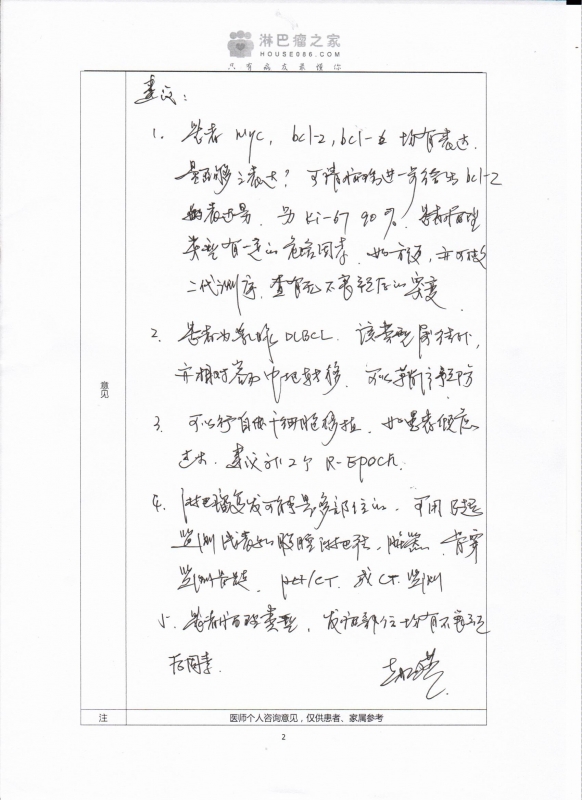 淋巴瘤之家
HOUSE086.COM
只有病友最懂你
建议：
1. 患者 myc, bcl-2, bcl-6 均有表达.
是否够三表达？可请病理进一步给出 bcl-2
的表达量. 另 Ki-67 90%. 患者病理
类型有一定的危险因素. 如方便, 亦可做
二代测序, 查有无不良预后的突变
2. 患者为乳腺 DLBCL. 该类型属结外,
亦相对容易中枢转移. 可以预防
3. 可以行自体干细胞移植. 如患者
建议 2个 R-EPOCH.
4. 淋巴瘤复发可能是多部位的. 可用B超
监测浅表和腹腔淋巴结, 脏器. 骨穿
监测骨髓. pet/CT. 或 CT 监测
5. 患者病理类型, 发病部位均有不良预
后因素.
意见
注
医师个人咨询意见，仅供患者、家属参考
2